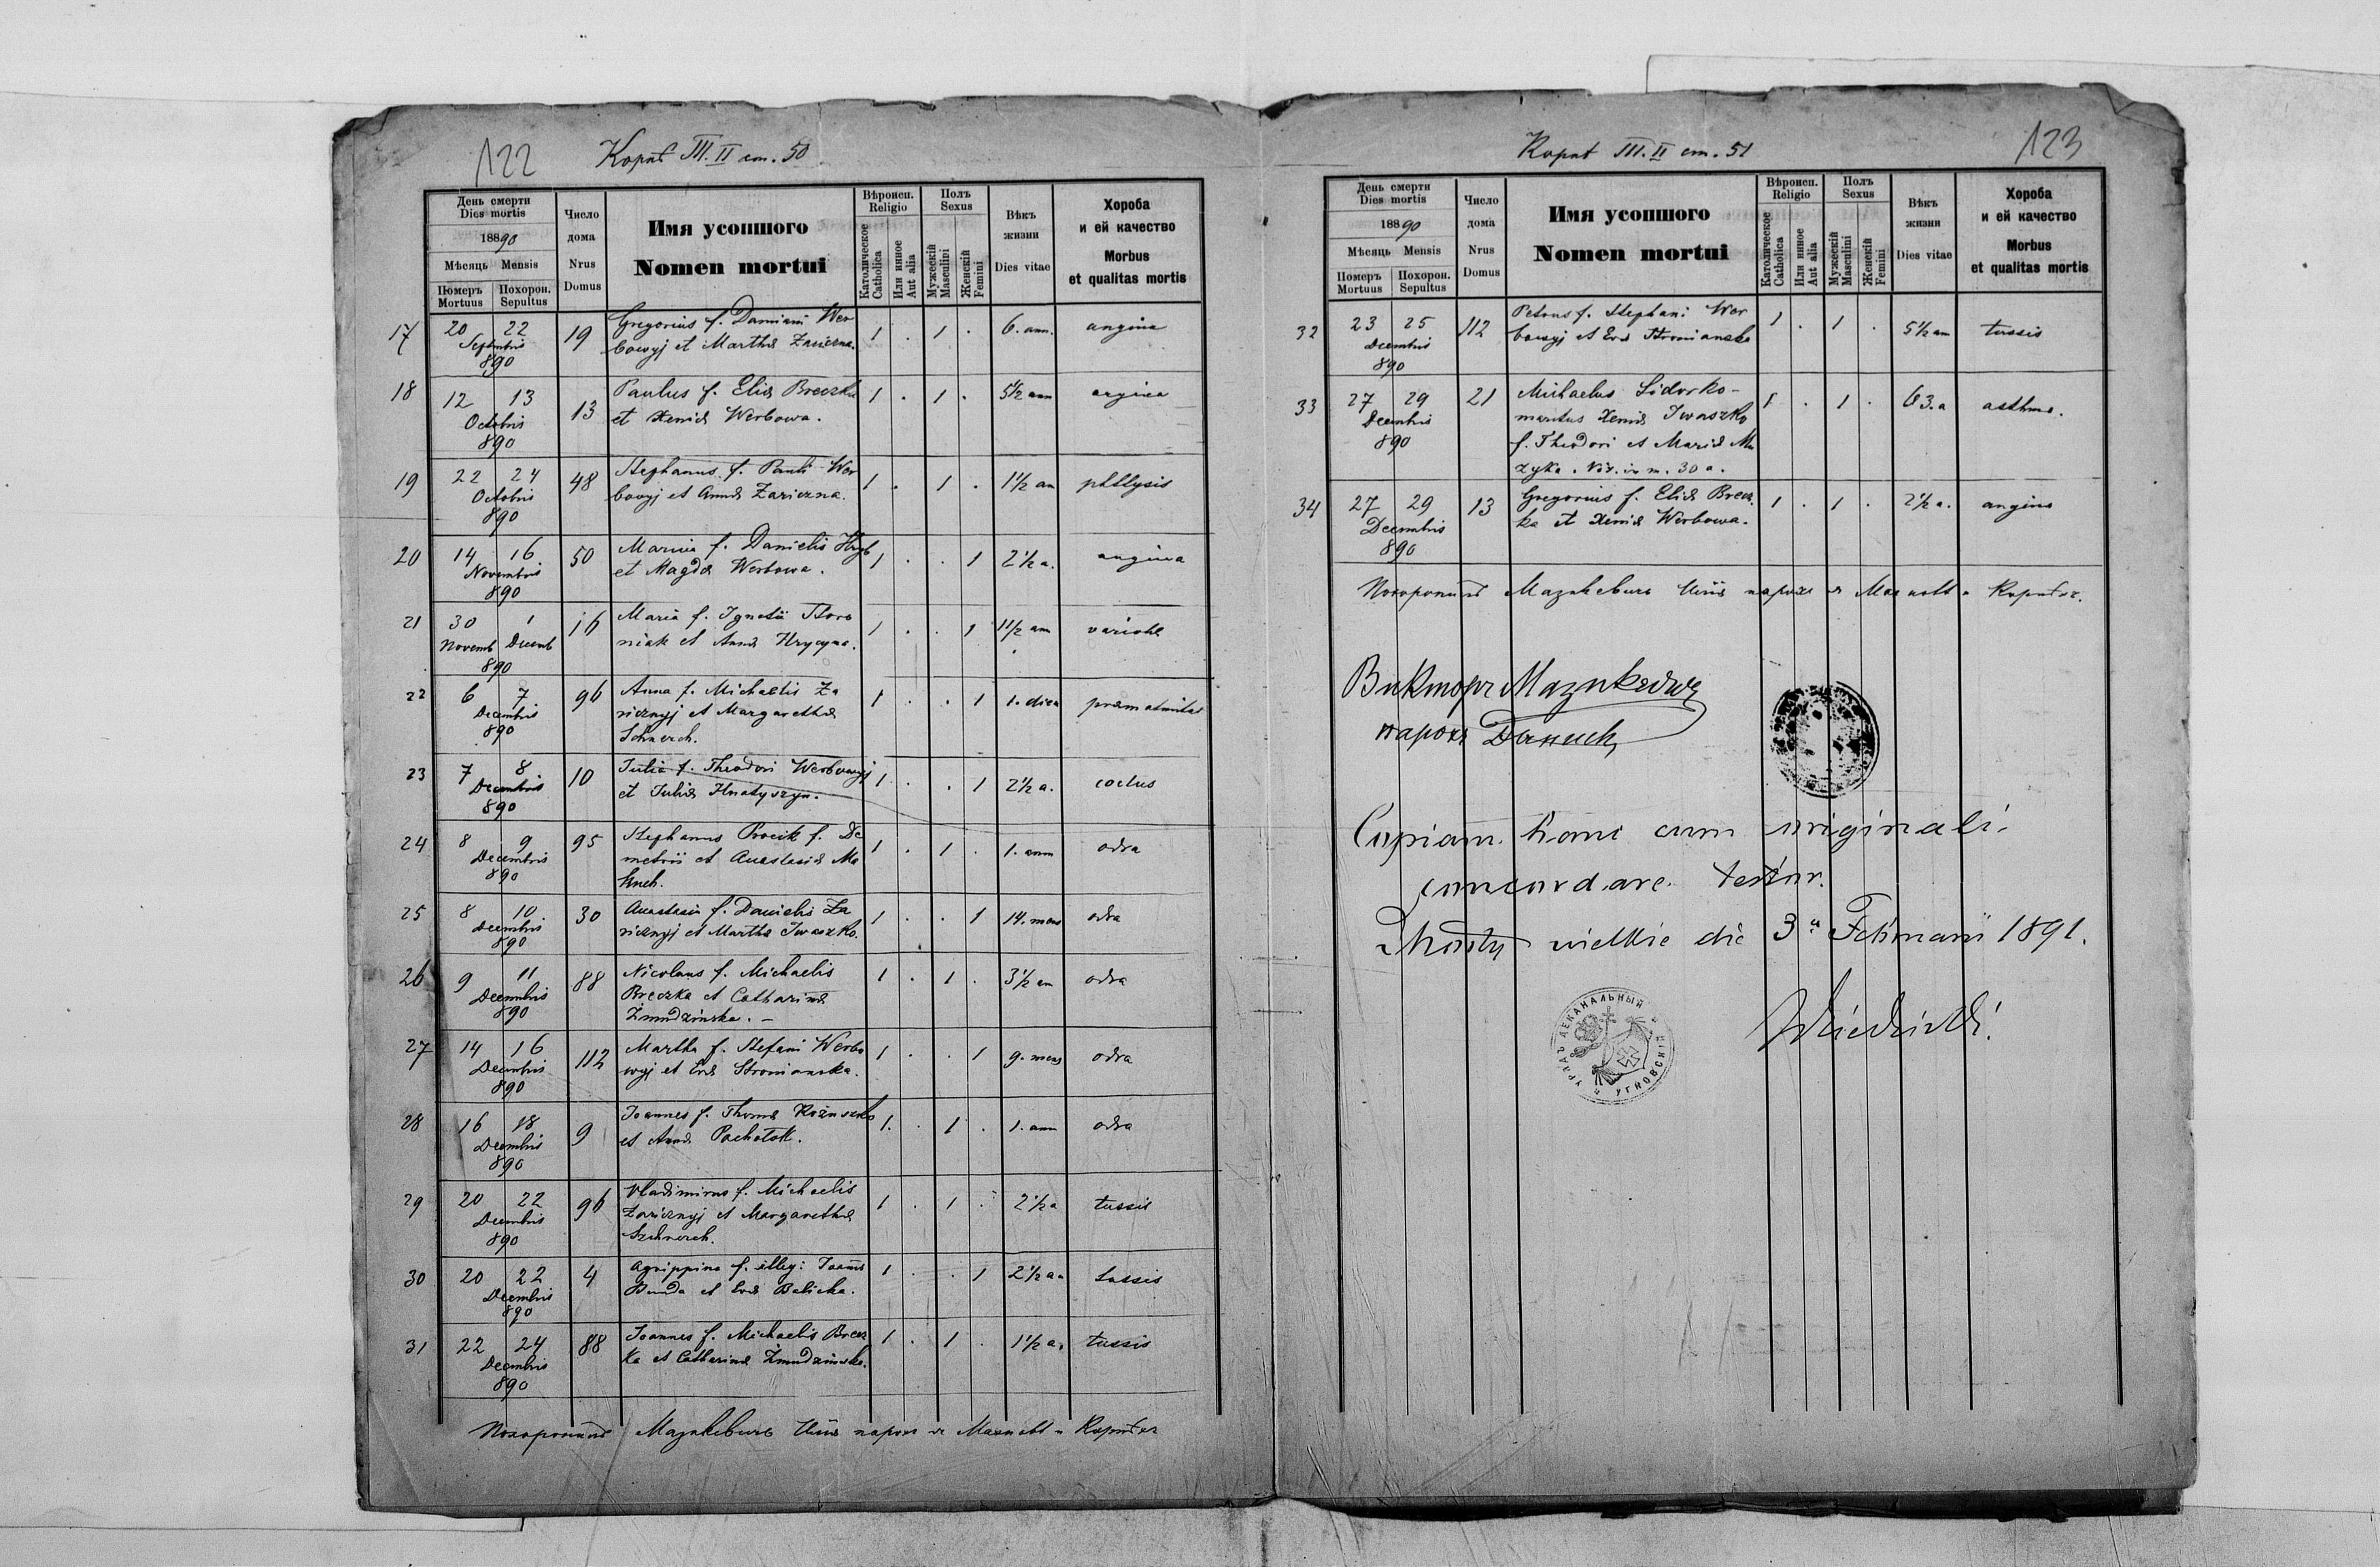 122
Корнѣ III. II ст. 50
День смерти
Dies mortis
1890
Мѣсяць Mensis
Померъ Mortuus
Похорон. Sepultus
Число дома
Nrus Domus
Имя усопшого
Nomen mortui
Вѣроисп.
Religio
Католическое Catholica
Или инное Aut alia
Полъ
Sexus
Мужескій Masculini
Женскій Femini
Вѣкъ жизни
Dies vitae
Хороба
и ей качество
Morbus
et qualitas mortis
17 20 22 Septembris 890 19 Gregorius f. Damiani Wer
bowyj et Marthæ Zariczna. 1 . 1 . 6. ann. angina
18 12 13 Octobris 890 13 Paulus f. Eliæ Breczka
et Xeniæ Werbowa. 1 . 1 . 5½ ann angina
19 22 24 Octobris 890 48 Stephanus f. Pauli Wer
bowyj et Annæ Zariczna. 1 . 1 . 1½ an phtysis
20 14 16 Novembris 890 50 Marina f. Danielis
et Magdæ Werbowa. 1 . . 1 2½ a. angina
21 30 Novemb 1 Decemb 890 16 Maria f. Ignatii
niak et Annæ Hrycyna. 1 . . 1 1½ ann variola
22 6 7 Decembris 890 96 Anna f. Michaelis Za
ricznyj et Margarethæ
Schnerch. 1 . . 1 1. dies
23 7 8 Decembris 890 10 Julia f. Theodori Werbowyj
et Juliæ Hnatyszyn. 1 . . 1 2½ a.
24 8 9 Decembris 890 95 Stephanus Procik f. De
metrii et Anastasiæ 1 . 1 . 1. ann odra
25 8 10 Decembris 890 30 Anastasia f. Danielis Za
ricznyj et Marthæ Iwaszko. 1 . . 1 14. mens odra
26 9 11 Decembris 890 88 Nicolaus f. Michaelis
Breczka et Catharinæ
Żmudzinska. – 1 . 1 . 3½ an odra
27 14 16 Decembris 890 112 Martha f. Stefani Werbo
wyj et Evæ Stronianska. 1 . . 1 9. mens odra
28 16 18 Decembris 890 9 Joannes f. Thomæ
et Annæ Pachotok. 1. . 1 . 1. ann odra
29 20 22 Decembris 890 96 Vladimirus f. Michaelis
Zariznyj et Margarethæ
Szchnerch. 1 . 1 . 2½ a tussis
30 20 22 Decembris 890 4 Agrippina f. illeg: Joannis
Bunda et Evæ Balicka. 1 . . 1 2½ a. tussis
31 22 24 Decembris 890 88 Joannes f. Michaelis Brecz
ka et Catharinæ Żmudzinska. 1 . 1 . 1½ a. tussis
Похоронилъ Мазикевичъ
123
Корнѣ III. II ст. 51
День смерти
Dies mortis
1890
Мѣсяць Mensis
Померъ Mortuus
Похорон. Sepultus
Число дома
Nrus Domus
Имя усопшого
Nomen mortui
Вѣроисп.
Religio
Католическое Catholica
Или инное Aut alia
Полъ
Sexus
Мужескій Masculini
Женскій Femini
Вѣкъ жизни
Dies vitae
Хороба
и ей качество
Morbus
et qualitas mortis
32 23 25 Decembris 890 112 Petrus f. Stephani Wer
bowyj et Evæ Stronianska 1 . 1 . 5½ an tussis
33 27 29 Decembris 890 21 Michaelus Sidorko –
maritus Xeniæ Iwaszko
f. Theodori et Mariæ Mu
zyka. Vix. in m. 30 a. 1 . 1 . 63. a asthma.
34 27 29 Decembris 890 13 Gregorius f. Eliæ Brecz
ka et Xeniæ Werbowa. 1 . 1 . 2½ a. angina
Похоронилъ Мазикевичъ
Викторъ Мазикевичъ
парохъ
Copiam hanc cum originali
concordare testor.
Mosty wielkie die 3a Februarii 1891.
УРЯДЪ ДЕКАНАЛЬНЫЙ УГНОВСКІЙ